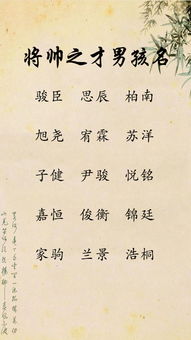 将帅之才男孩名
骏臣 思辰 柏南
旭尧 宥霖 苏洋
子健 尹骏 悦铭
嘉恒 俊衡 锦廷
家驹 兰景 浩桐